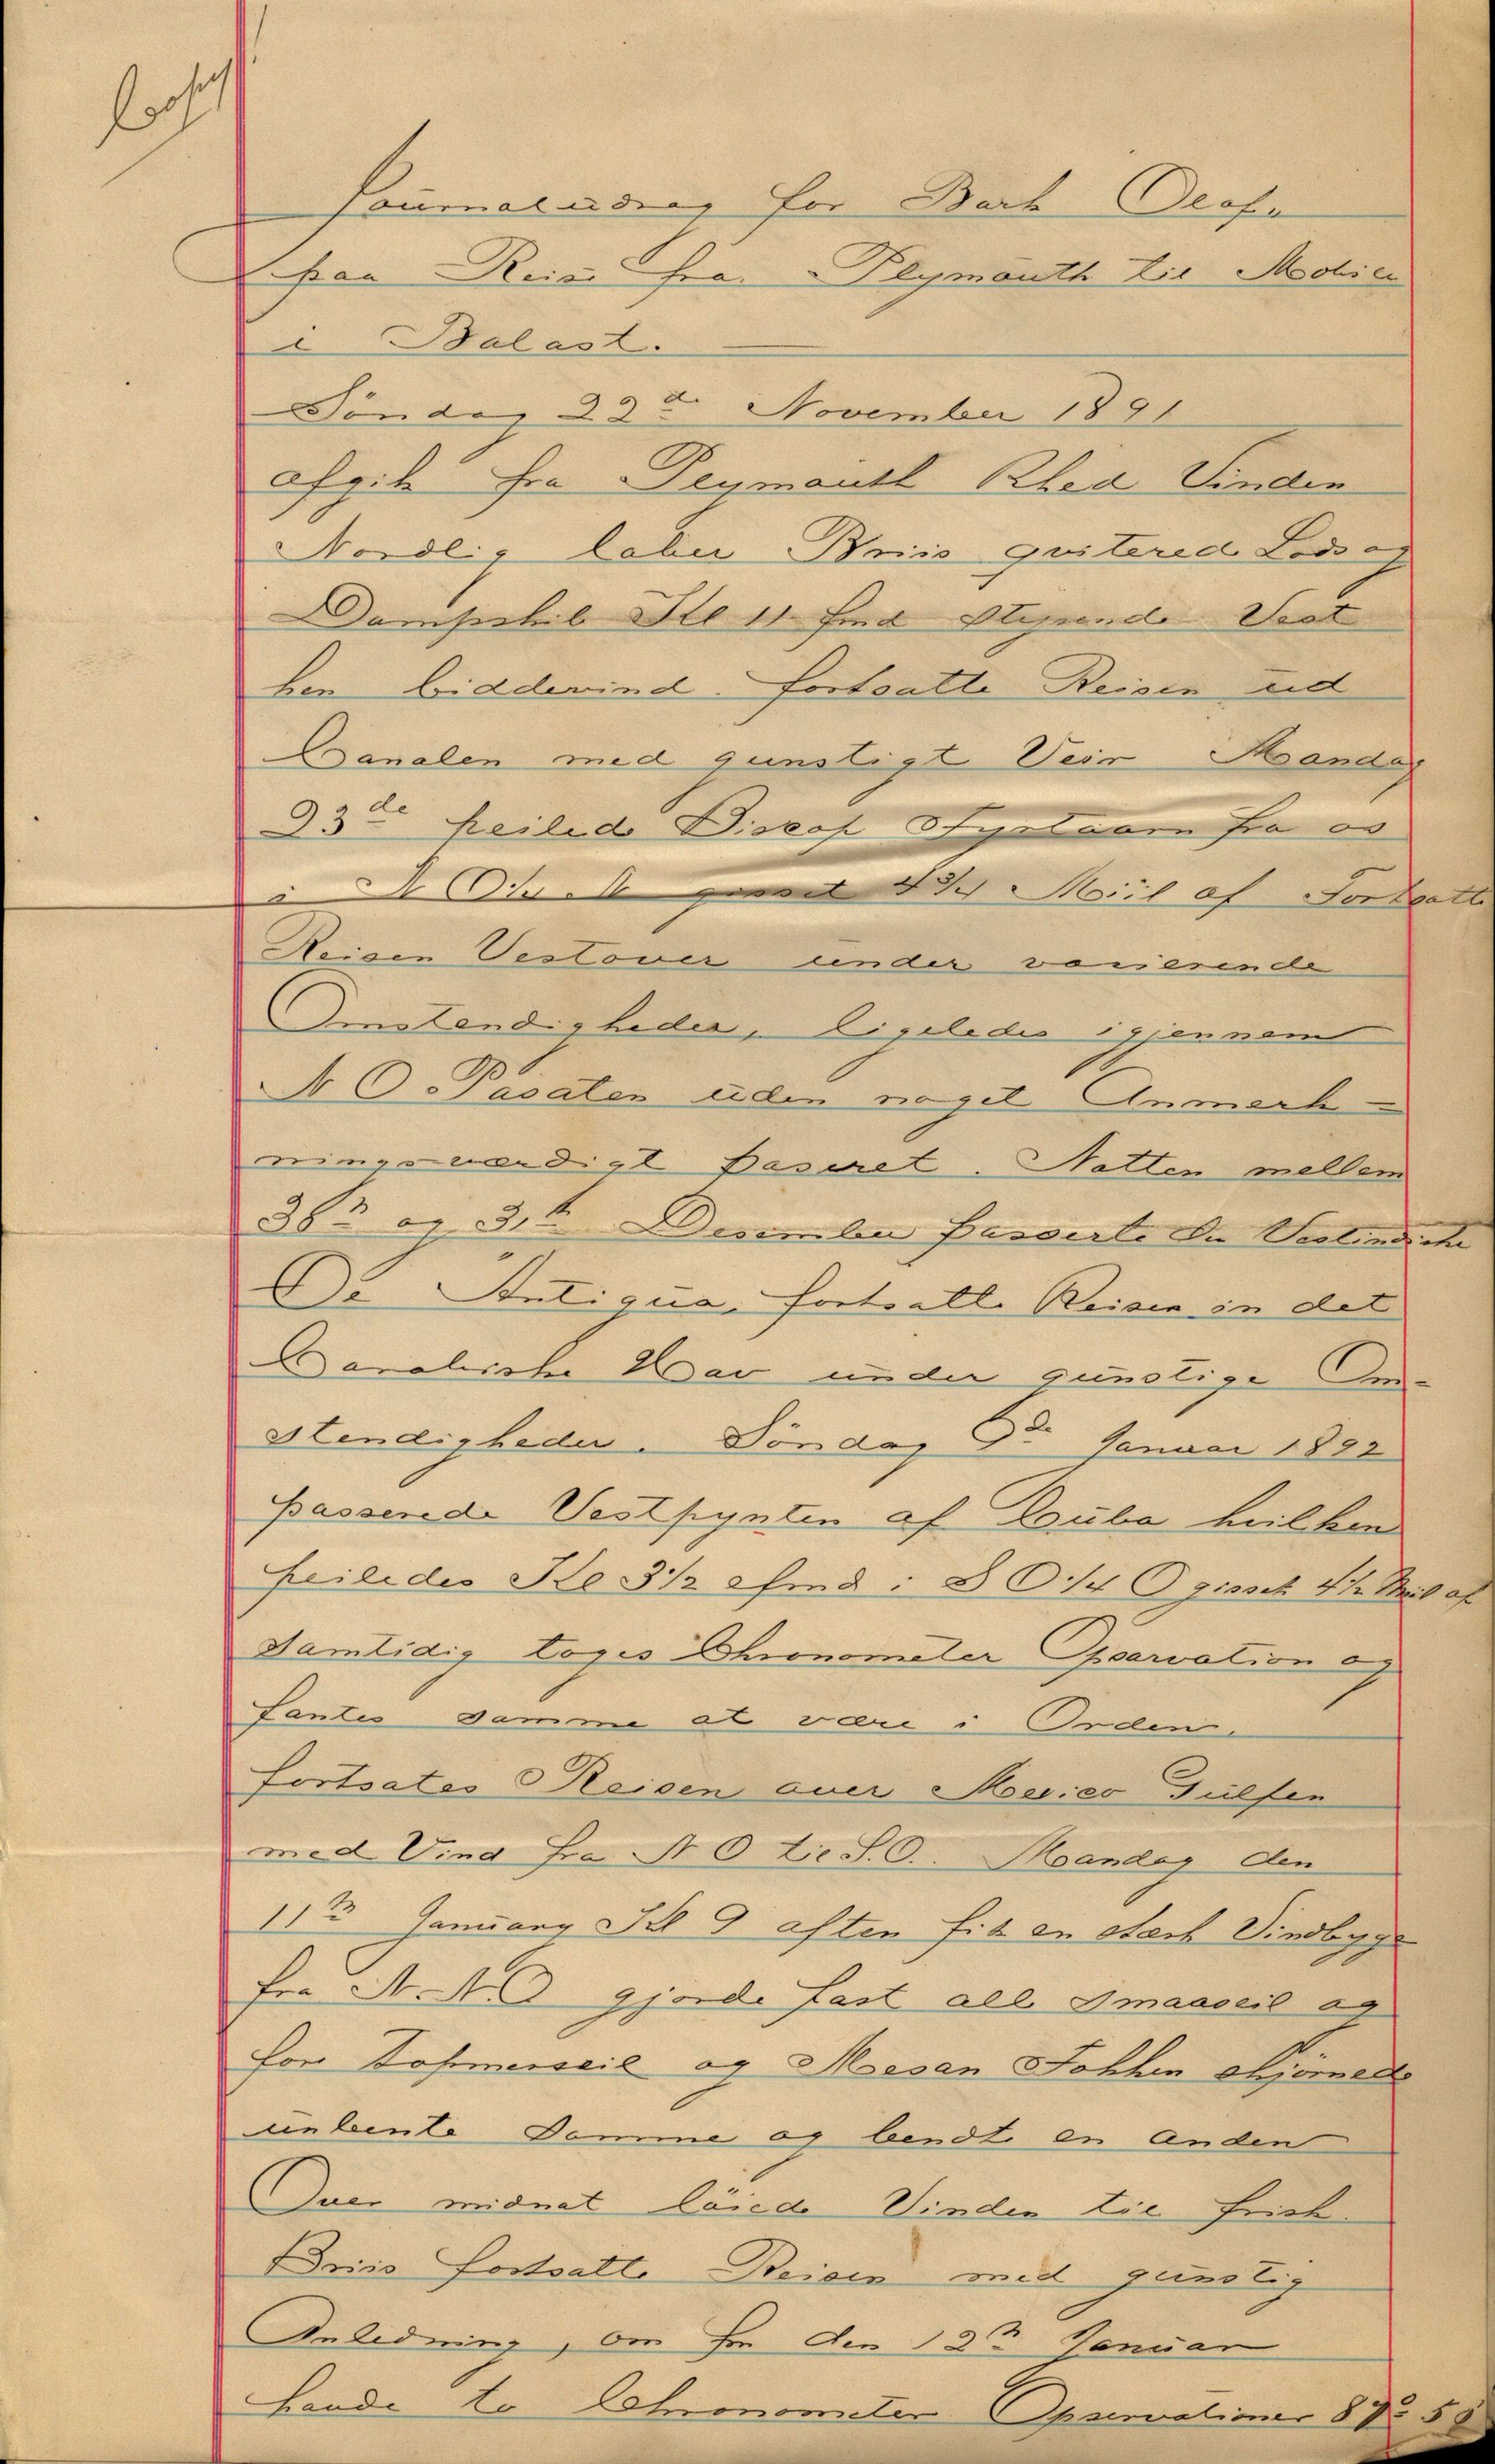 Journaludrag for Bark Olafu
paa Reise fra Plymouth til Mobile
i Balast.
Söndag 22de November 1891
afgik fra Plymouth Rhed Vinden
Nordlig laber Briis quiterede Lods og
Dampskib Kl 11 fmd Styrende Vest
hen biddevind. fortsatte Reisen ud
Canalen med gunstigt Veir Mandag
23de peilede Biscop Fyrtaarn fra os
i N O 1/4 N gisset 4 3/4 Miil af Fortsatte
Reisen Vestover under varierende
Omstendigheder, ligeledes igjennem
N O Pasaten uden noget Anmerk-
ningsværdigt Paseret. Natten mellem
30te og 31te Desember Passerte den Vestindiske
Ö Antigua, fortsatte Reisen in det
Caraibiske Hav under gunstige Om-
stendigheder. Söndag 9de Januar 1892
passerede Vestpynten af Cuba hvilken
peiledes Kl 3 1/2 efmd i S O 1/4 O gisset 4 1/2 Mil af
Samtidig toges Chronometer Opservation og
fantes samme at være i Orden.
fortsates Reisen over Mexico Gulfen
med Vind fra N O til S.O. Mandag den
11te January Kl 9 aften fik en stærk Vindbyge
fra N.N.O gjorde fast alle Smaaseil og
for Topmerseil og Mesan Fokken skjörnede
unbente Samme og bendte en anden
Over midnat löiede Vinden til frisk
Briis fortsatte Reisen med gunstig
Anledning, om fm den 12te Januar
havde to Chronometer Opservationer 87° 58